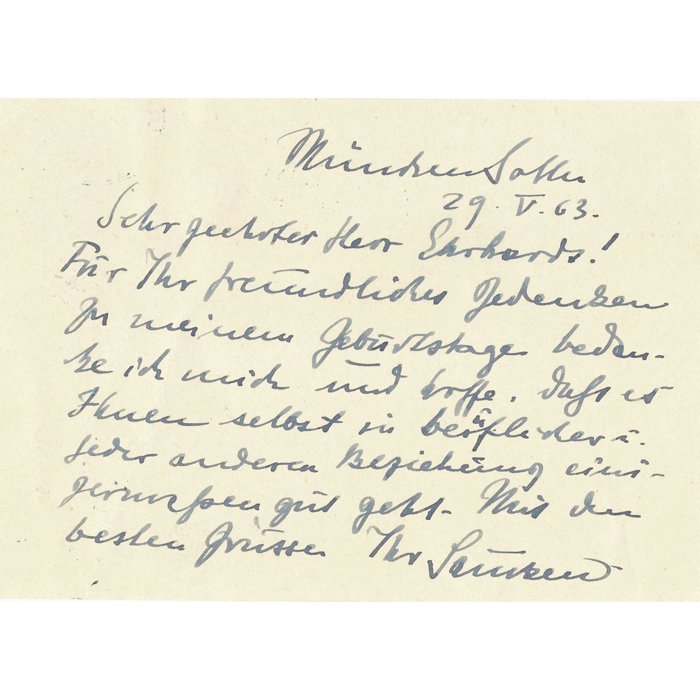 München Solln
29. V. 63.
Sehr geehrter Herr Ehrhards!
Für Ihr freundliches Gedenken
zu meinem Geburtstage bedan-
ke ich mich und hoffe, daß es
Ihnen selbst in beruflicher u.
jeder anderen Beziehung eini-
germaßen gut geht. Mit den
besten Grüssen Ihr